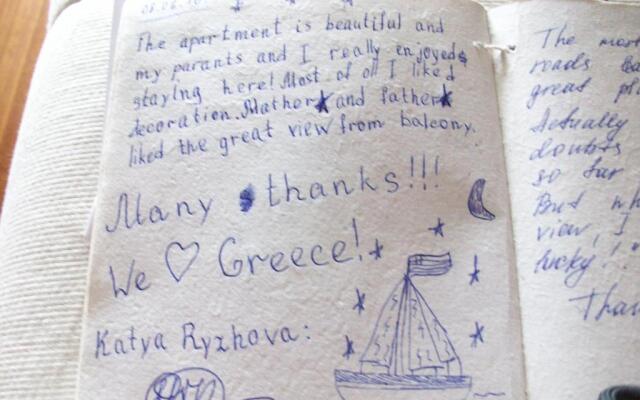 08.06.10
The apartment is beautiful and
my parants and I really enjoyed
stayIng here! Most of all I liked
decoration. Mather and father
liked the great view from balcony.
Many thanks!!!
We ♡ Greece!
Katya Ryzhova:
The most
roads
great
Actually
doubts
so far
But wh
view, I
lucky!!
Than